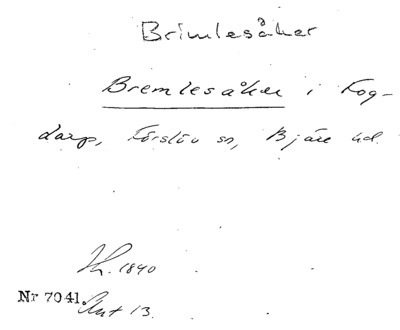 Brimlesåker
Bremlesåker i Fog-
darp, Förslöv sn, Bjäre hd.
Th. 1840
Nr 7041. Ant 13.